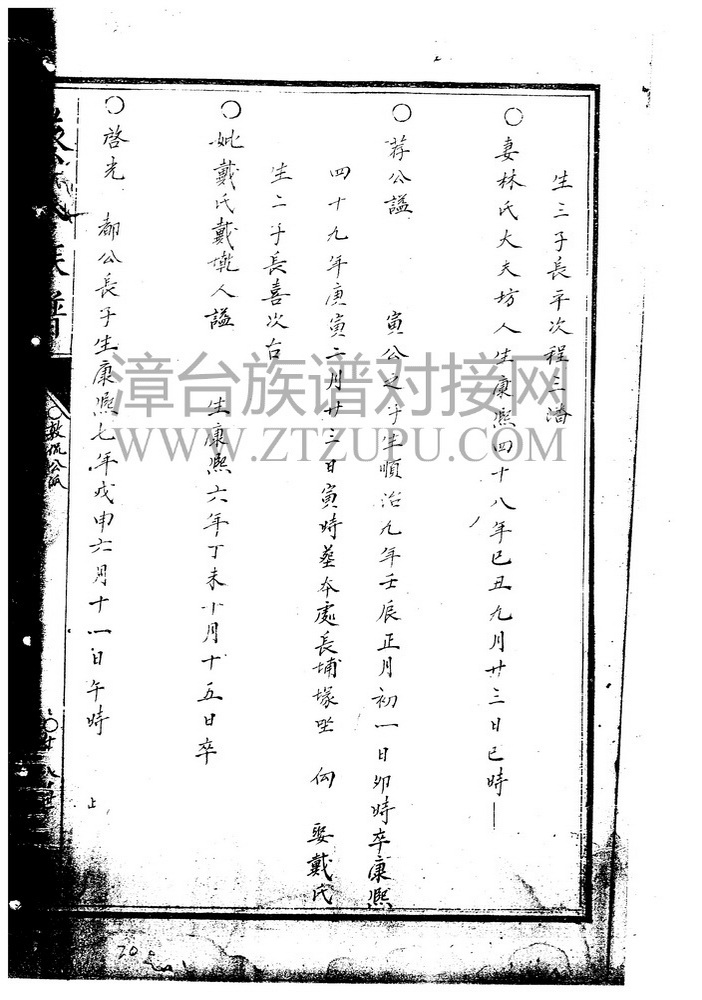 生三子長平次程三潘
○妻林氏大夫坊人生康熙四十八年巳丑九月廿三日巳時
○荐公謚 寅公之子生順治九年壬辰正月初一日卯時卒康熙
四十九年庚寅二月廿三日寅時墓本處長埔塚坐 向 娶戴氏
生二子長喜次台
○妣戴氏戴墘人謚 生康熙六年丁未十月十五日卒
○啓光 都公長子生康熙七年戊申六月十一日午時
上
族譜
漳台族谱对接网
WWW.ZTZUPU.COM
20